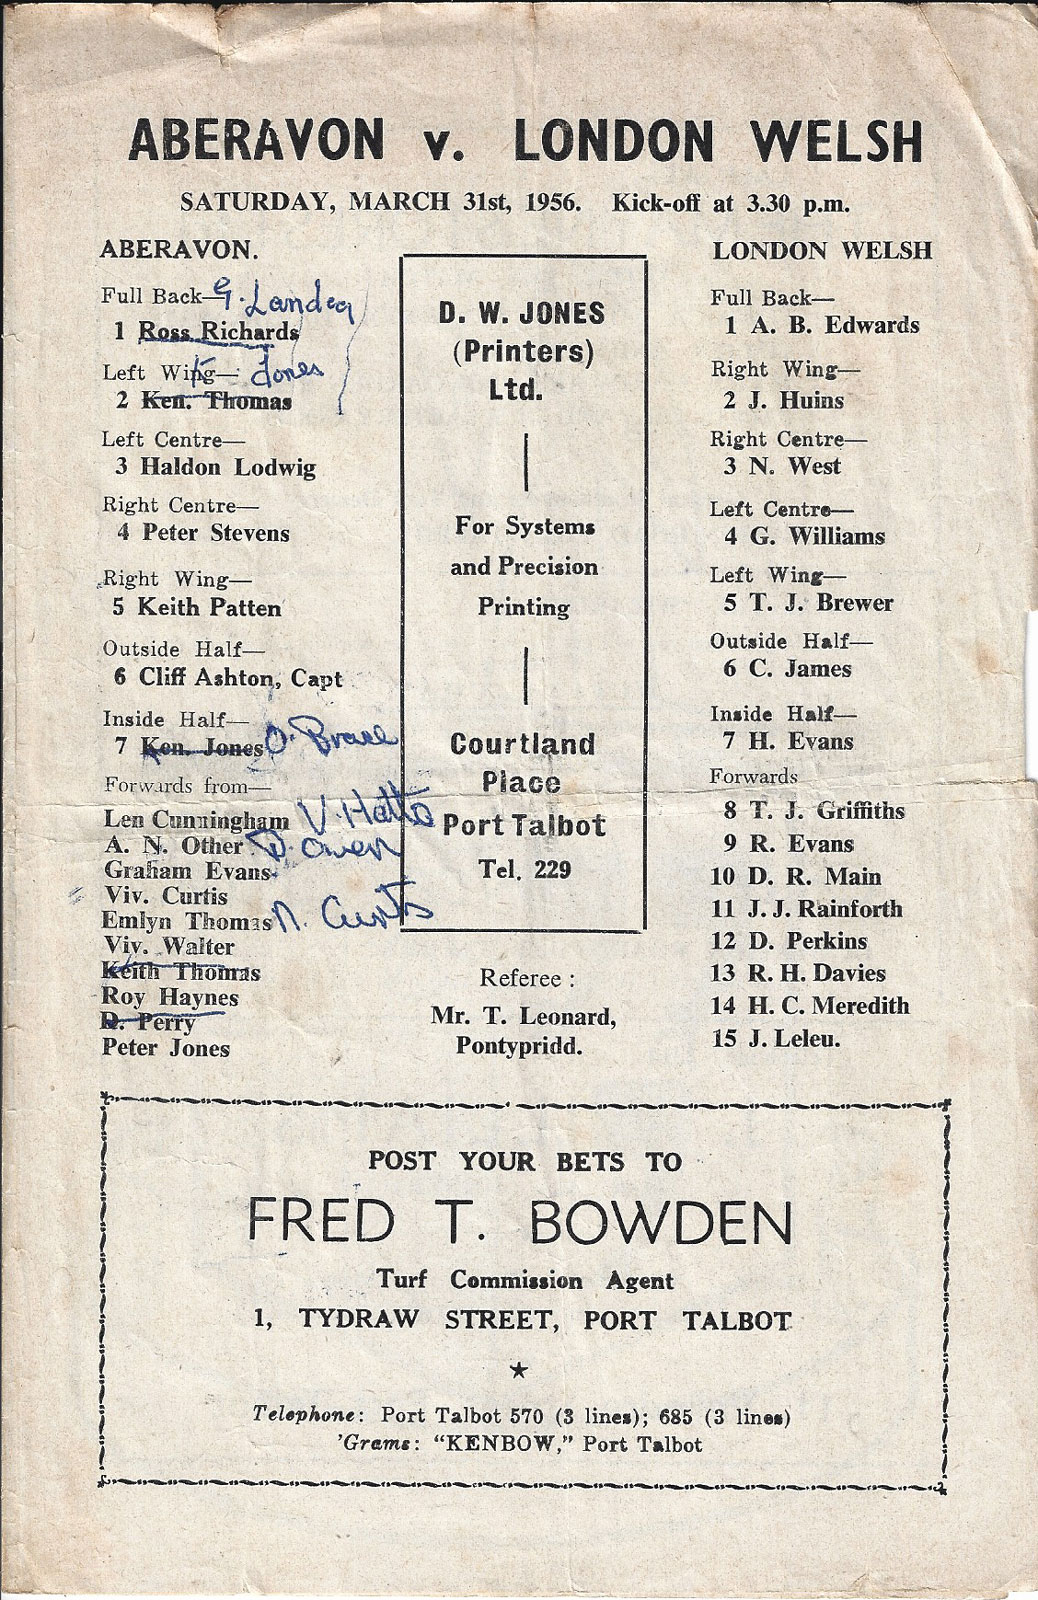 ABERAVON v. LONDON WELSH
SATURDAY, MARCH 31st, 1956. Kick-off at 3.30 p.m.
ABERAVON.
Full Back— G. Landeg
1 Ross Richards
Left Wing— K Jones
2 Ken. Thomas
Left Centre—
3 Haldon Lodwig
Right Centre—
4 Peter Stevens
Right Wing—
5 Keith Patten
Outside Half—
6 Cliff Ashton, Capt
Inside Half—
7 Ken. Jones O. Brace
Forwards from—
Len Cunningham V. Hatto
A. N. Other D. Owen
Graham Evans
Viv. Curtis
Emlyn Thomas N. Curtis
Viv. Walter
Keith Thomas
Roy Haynes
D. Perry
Peter Jones
D. W. JONES
(Printers)
Ltd.
For Systems
and Precision
Printing
Courtland
Place
Port Talbot
Tel. 229
Referee :
Mr. T. Leonard,
Pontypridd.
LONDON WELSH
Full Back—
1 A. B. Edwards
Right Wing—
2 J. Huins
Right Centre—
3 N. West
Left Centre—
4 G. Williams
Left Wing—
5 T. J. Brewer
Outside Half—
6 C. James
Inside Half—
7 H. Evans
Forwards
8 T. J. Griffiths
9 R. Evans
10 D. R. Main
11 J. J. Rainforth
12 D. Perkins
13 R. H. Davies
14 H. C. Meredith
15 J. Leleu.
POST YOUR BETS TO
FRED T. BOWDEN
Turf Commission Agent
1, TYDRAW STREET, PORT TALBOT
Telephone: Port Talbot 570 (3 lines); 685 (3 lines)
'Grams: "KENBOW," Port Talbot